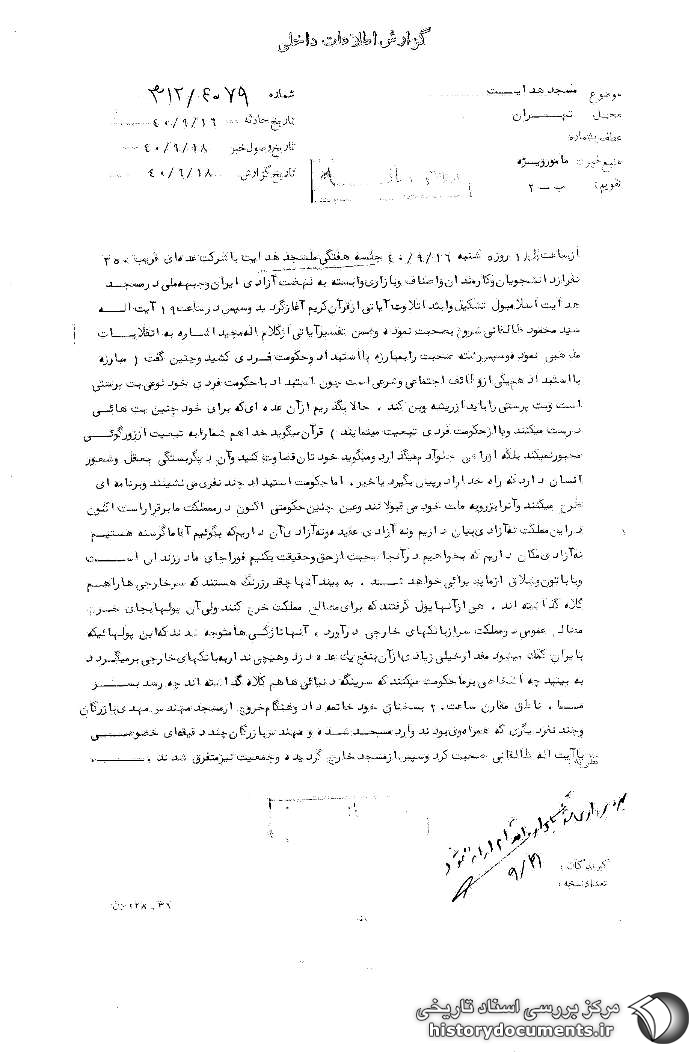 گزارش اطلاعات داخلی
موضوع مسجد هدایت
شماره ۳۱۲/۶۰۷۹
محل تهران
تاریخ حادثه ۴۰/۹/۱۶
عطف بشماره
تاریخ وصول خبر ۴۰/۹/۱۸
منبع خبر مامور ویژه
تاریخ گزارش ۴۰/۹/۱۸
تقویم: ب - ۲
از ساعت روز شنبه ۴۰/۹/۱۶ جلسه هفتگی مسجد هدایت با شرکت عده‌ای قریب ۳۵۰
نفر از دانشجویان و کارمندان و اصناف و بازاری وابسته به نهضت آزادی ایران و جبهه ملی در مسجد
هدایت اسلامبول تشکیل و ابتدا تلاوت آیاتی از قرآن کریم آغاز گردید و سپس در ساعت ۱۹ آیت اله
سید محمود طالقانی شروع بصحبت نموده و ضمن تفسیر آیاتی از کلام اله مجید اشاره به انقلابات
مذهبی نمود و سپس رشته صحبت را بمبارزه با استبداد و حکومت فردی کشید و چنین گفت (مبارزه
با استبداد هم یکی از وظائف اجتماعی و شرعی است چون استبداد یا حکومت فردی خود نوعی بت پرستی
است و بت پرستی را باید از ریشه و بن کند . حالا بگذریم از آن عده‌ای که برای خود چنین بت هائی
درست میکنند و یا از حکومت فردی تبعیت مینمایند) قرآن میگوید خدا هم شما را به تبعیت از زورگوئی
مجبور نمیکند بلکه او راهی جلو آدم میگذارد و میگوید خودتان قضاوت کنید و آن دیگر بستگی بعقل و شعور
انسان دارد که راه خدا را در پیش بگیرد یا خیر . اما حکومت استبداد چند نفری می‌نشینند و برنامه‌ای
طرح میکنند و آنرا بزور به ملت خود می‌قبولانند و عین چنین حکومتی اکنون در مملکت ما برقرار است اکنون
در این مملکت نه آزادی بیان داریم و نه آزادی عقیده و نه آزادی آن داریم که بگوئیم آقا ما گرسنه هستیم
نه آزادی مکان داریم که بخواهیم در آنجا صحبت از حق و حقیقت بکنیم فورا جای ما در زندان است
و یا با توپ و شلاق از ما پذیرائی خواهد شد . به بینید آنها چقدر زرنگ هستند که سر خارجی ها را هم
کلاه گذاشته اند . هی از آنها پول گرفتند که برای مصالح مملکت خرج کنند ولی آن پولها بجای خرج
مصالح عمومی در مملکت سر از بانکهای خارجی درآورد . آنها تازگی ها متوجه شدند که این پولهائیکه
بایران کمک میشود مقدار خیلی زیادی از آن بنفع یک عده دزد و هیچی ندار به بانکهای خارجی برمیگردد
به بینید چه اشخاصی بر ما حکومت میکنند که سر ینگه دنیائی ها هم کلاه گذاشته اند چه رسد بسر
مسا . ناطق مقارن ساعت ۲۰ بسخنان خود خاتمه داد و هنگام خروج از مسجد مهندس مهدی بازرگان
و چند نفر دیگری که همراه وی بودند وارد مسجد شده و مهندس بازرگان چند دقیقه‌ای خصوصی
با آیت اله طالقانی صحبت کرد و سپس از مسجد خارج گردیده و جمعیت نیز متفرق شدند .
نظریه
۹/۲۱
گیرندگان :
تعداد نسخه :
مرکز بررسی اسناد تاریخی
historydocuments.ir